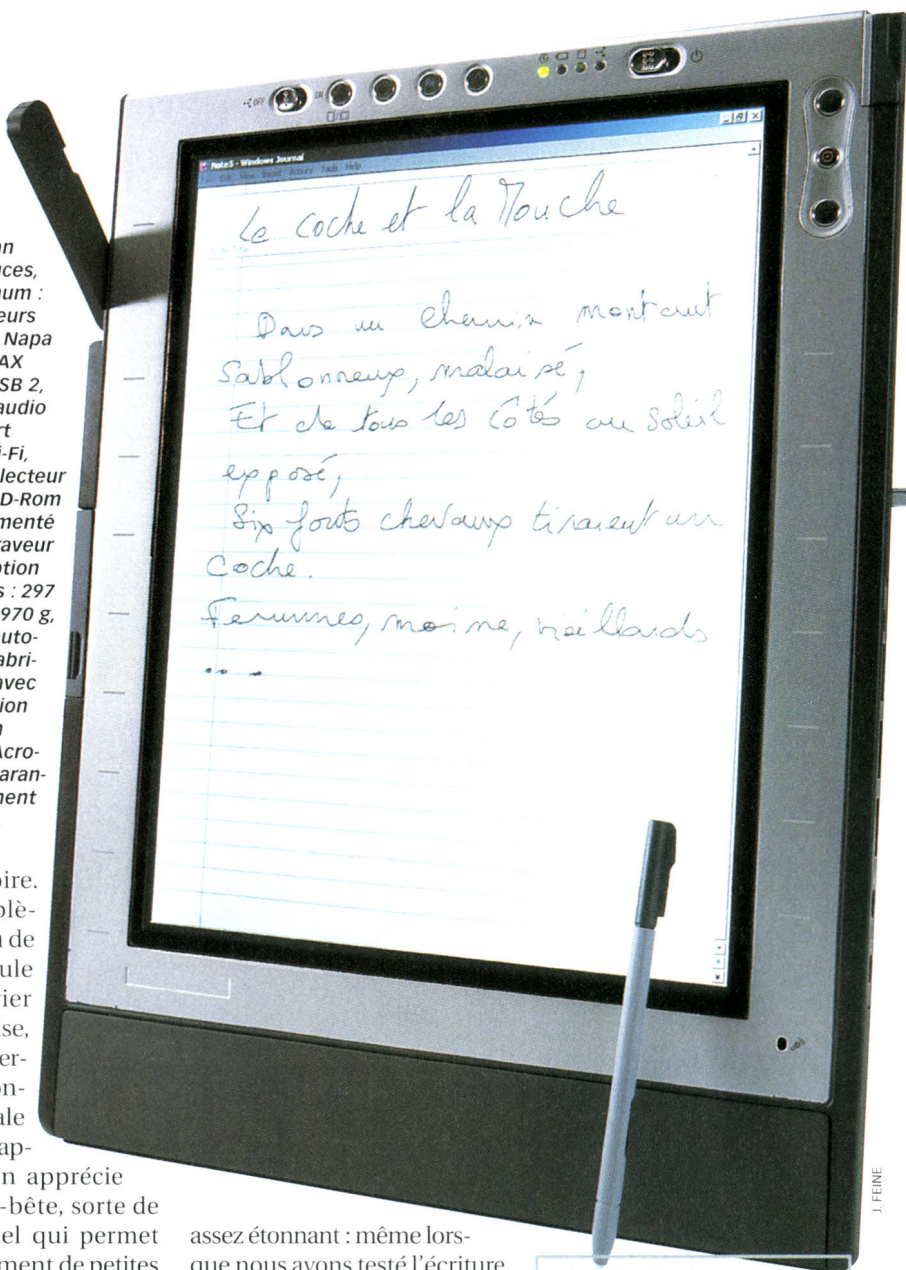 an
uces,
num :
eurs
Napa
AX
SB 2,
audio
rt
i-Fi,
lecteur
D-Rom
menté
raveur
ption
s : 297
970 g,
uto-
abri-
avec
ion
Acro-
aran-
ment
oire.
plè-
u de
ule
vier
ise,
er-
on-
ale
ap-
n apprécie
-bête, sorte de
el qui permet
ment de petites
OFF
ON
Note5 - Windows Journal
File Edit View Insert Actions Tools Help
Le coche et la Mouche
Dans un chemin montant
sablonneux, malaisé,
Et de tous les côtés au soleil
exposé,
Six forts chevaux tiraient un
coche.
Femmes, moine, vieillards
....
assez étonnant : même lors-
que nous avons testé l'écriture
J. FEINE